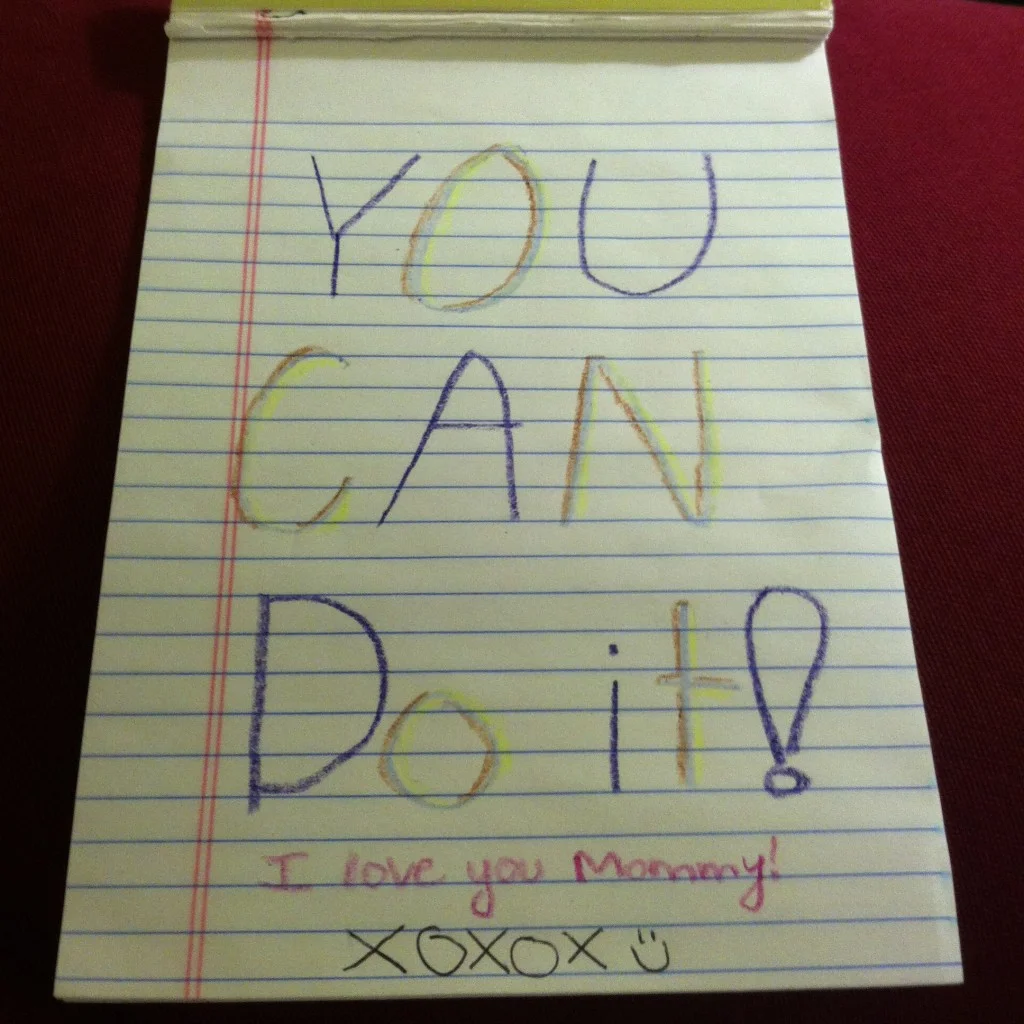 YOU
CAN
Do it!
I love you Mommy!
XOXOX Ü